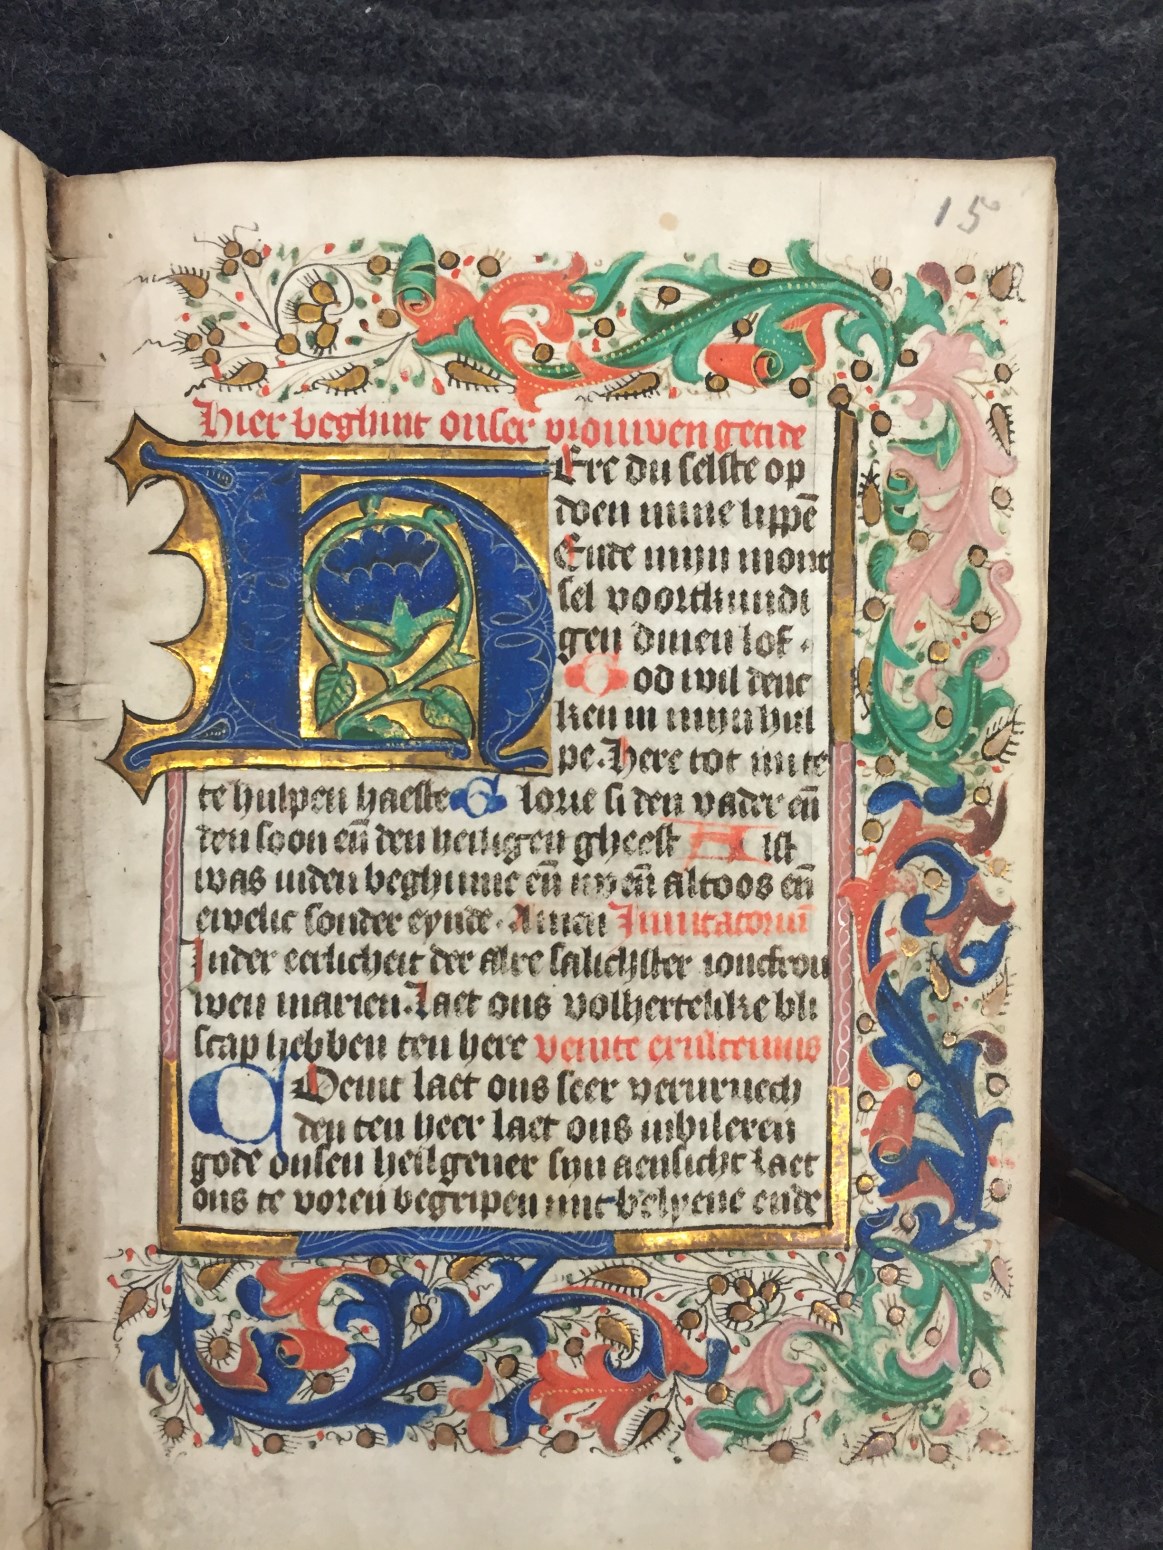 15
Hier beghint onser vrouwen getide
HEre du selste op
doen mine lippē
Ende mijn mont
sel voortkundi
gen dinen lof.
God wil denc
ken in mijn hul
pe. Here tot mi te
te hulpen haeste Glorie si den vader eñ
den soon eñ den heiligen gheest Alst
was inden beghinne eñ nv eñ altoos eñ
ewelic sonder eynde. Amen Inuitatoriū
Inder eerlicheit der alre salichster ionckvrou
wen marien. Laet ons volhertelike bli
scap hebben ten here venite exultemus
COemt laet ons seer vervruech
den ten heer laet ons iubileren
gode onsen heilgeuer sijn aensicht laet
ons te voren begripen mit belyene ende